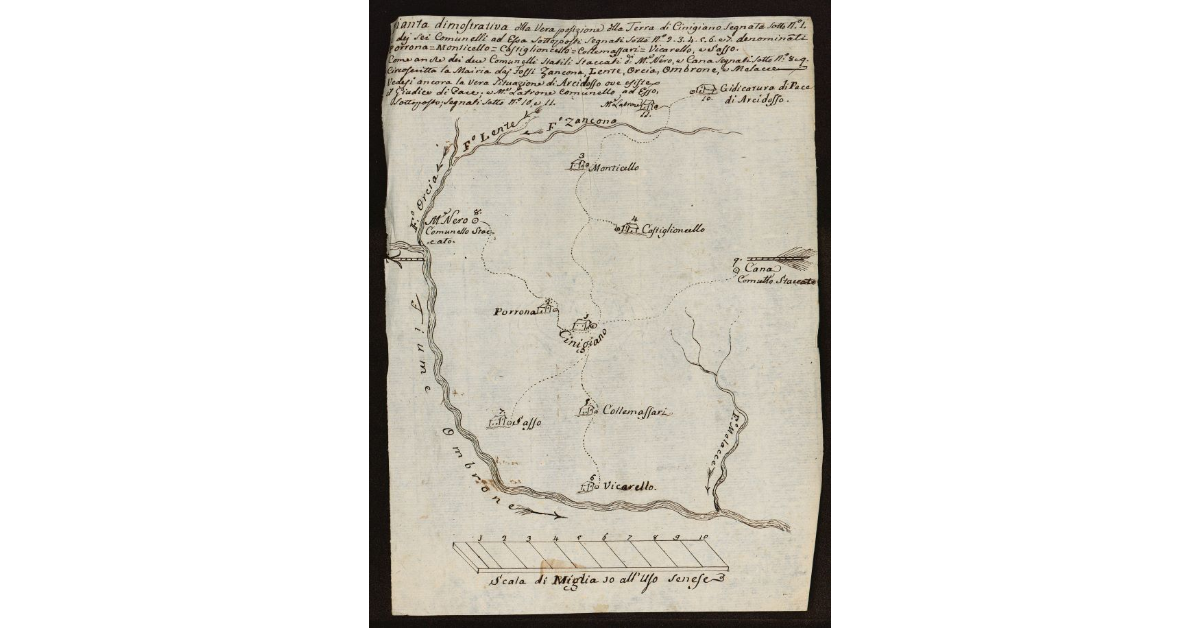 Pianta dimostrativa della Vera posizione della Terra di Cinigiano Segnata Sotto N.º 1.
dei Sei Comunelli ad Essa Sottoposti Segnati Sotto N.º 2. 3. 4. 5. 6. e 7. denominati
Porrona = Monticello = Castiglioncello = Collemassari = Vicarello, e Sasso.
Come anche dei due Comunelli Stabili Staccati di M.te Nero, e Cana Segnati Sotto N.º 8. e 9.
Circoscritta la Mairia dai Fossi Zancona, Lente, Orcia, Ombrone, e Melacce
Vedesi ancora la vera Situazione di Arcidosso ove esiste
il Giudice di Pace, e M.te Latrone Comunello ad Esso
Sottoposto; Segnati Sotto N.º 10. e 11.
Gidicatura di Pace
di Arcidosso.
10.
M.te Latrone
11.
F.º Lente
F.º Zancona
3
Monticello
F.º Orcia
M.te Nero 8.
Comunello Stac-
cato.
4
Castiglioncello
9.
Cana
Comu.llo Staccato
2
Porrona
1
Cinigiano
Fiume Ombrone
7
Sasso
5
Collemassari
F.º Melacce
6
Vicarello.
1 2 3 4 5 6 7 8 9 10
Scala di Miglia 10 all'Uso Senese